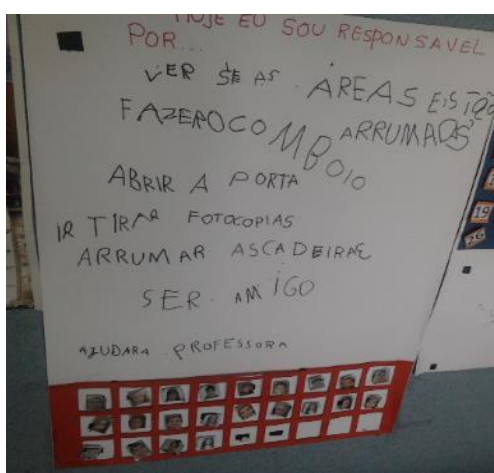 HOJE EU SOU RESPONSAVEL
POR...
VER SE AS ÁREAS ESTÃO
ARRUMADAS
FAZEROCOMBOIO
ABRIR A PORTA
IR TIRAR FOTOCOPIAS
ARRUMAR ASCADEIRAS
SER AMIGO
AJUDARA PROFESSORA
19